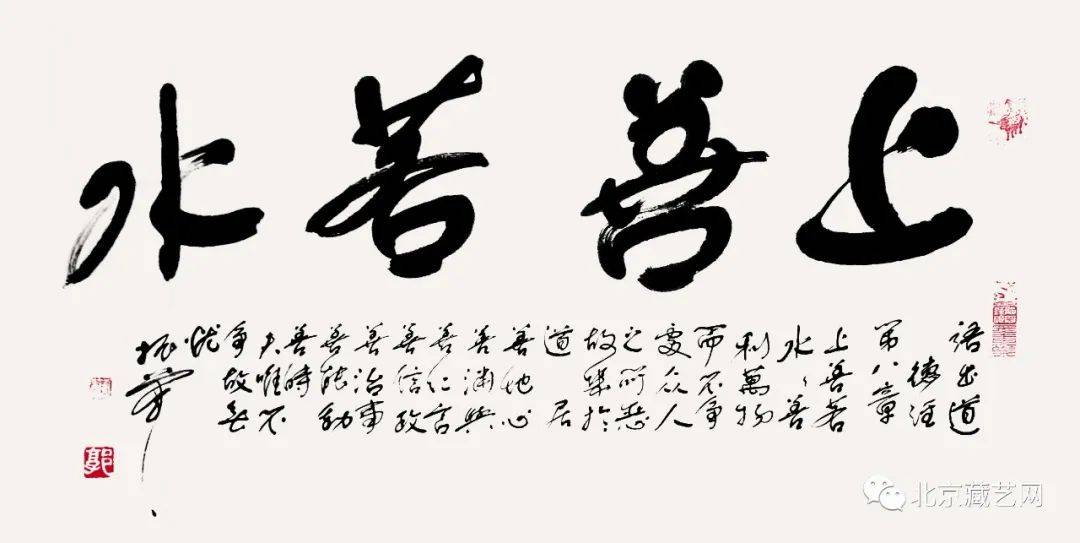 上善若水
語出道
德经
第八章
上善若
水〻善
利萬物
而不争
處众人
之所恶
故幾於
道居
善地心
善渊與
善仁言
善信政
善治事
善能動
善時
夫唯不
争故无
郭
北京藏艺网